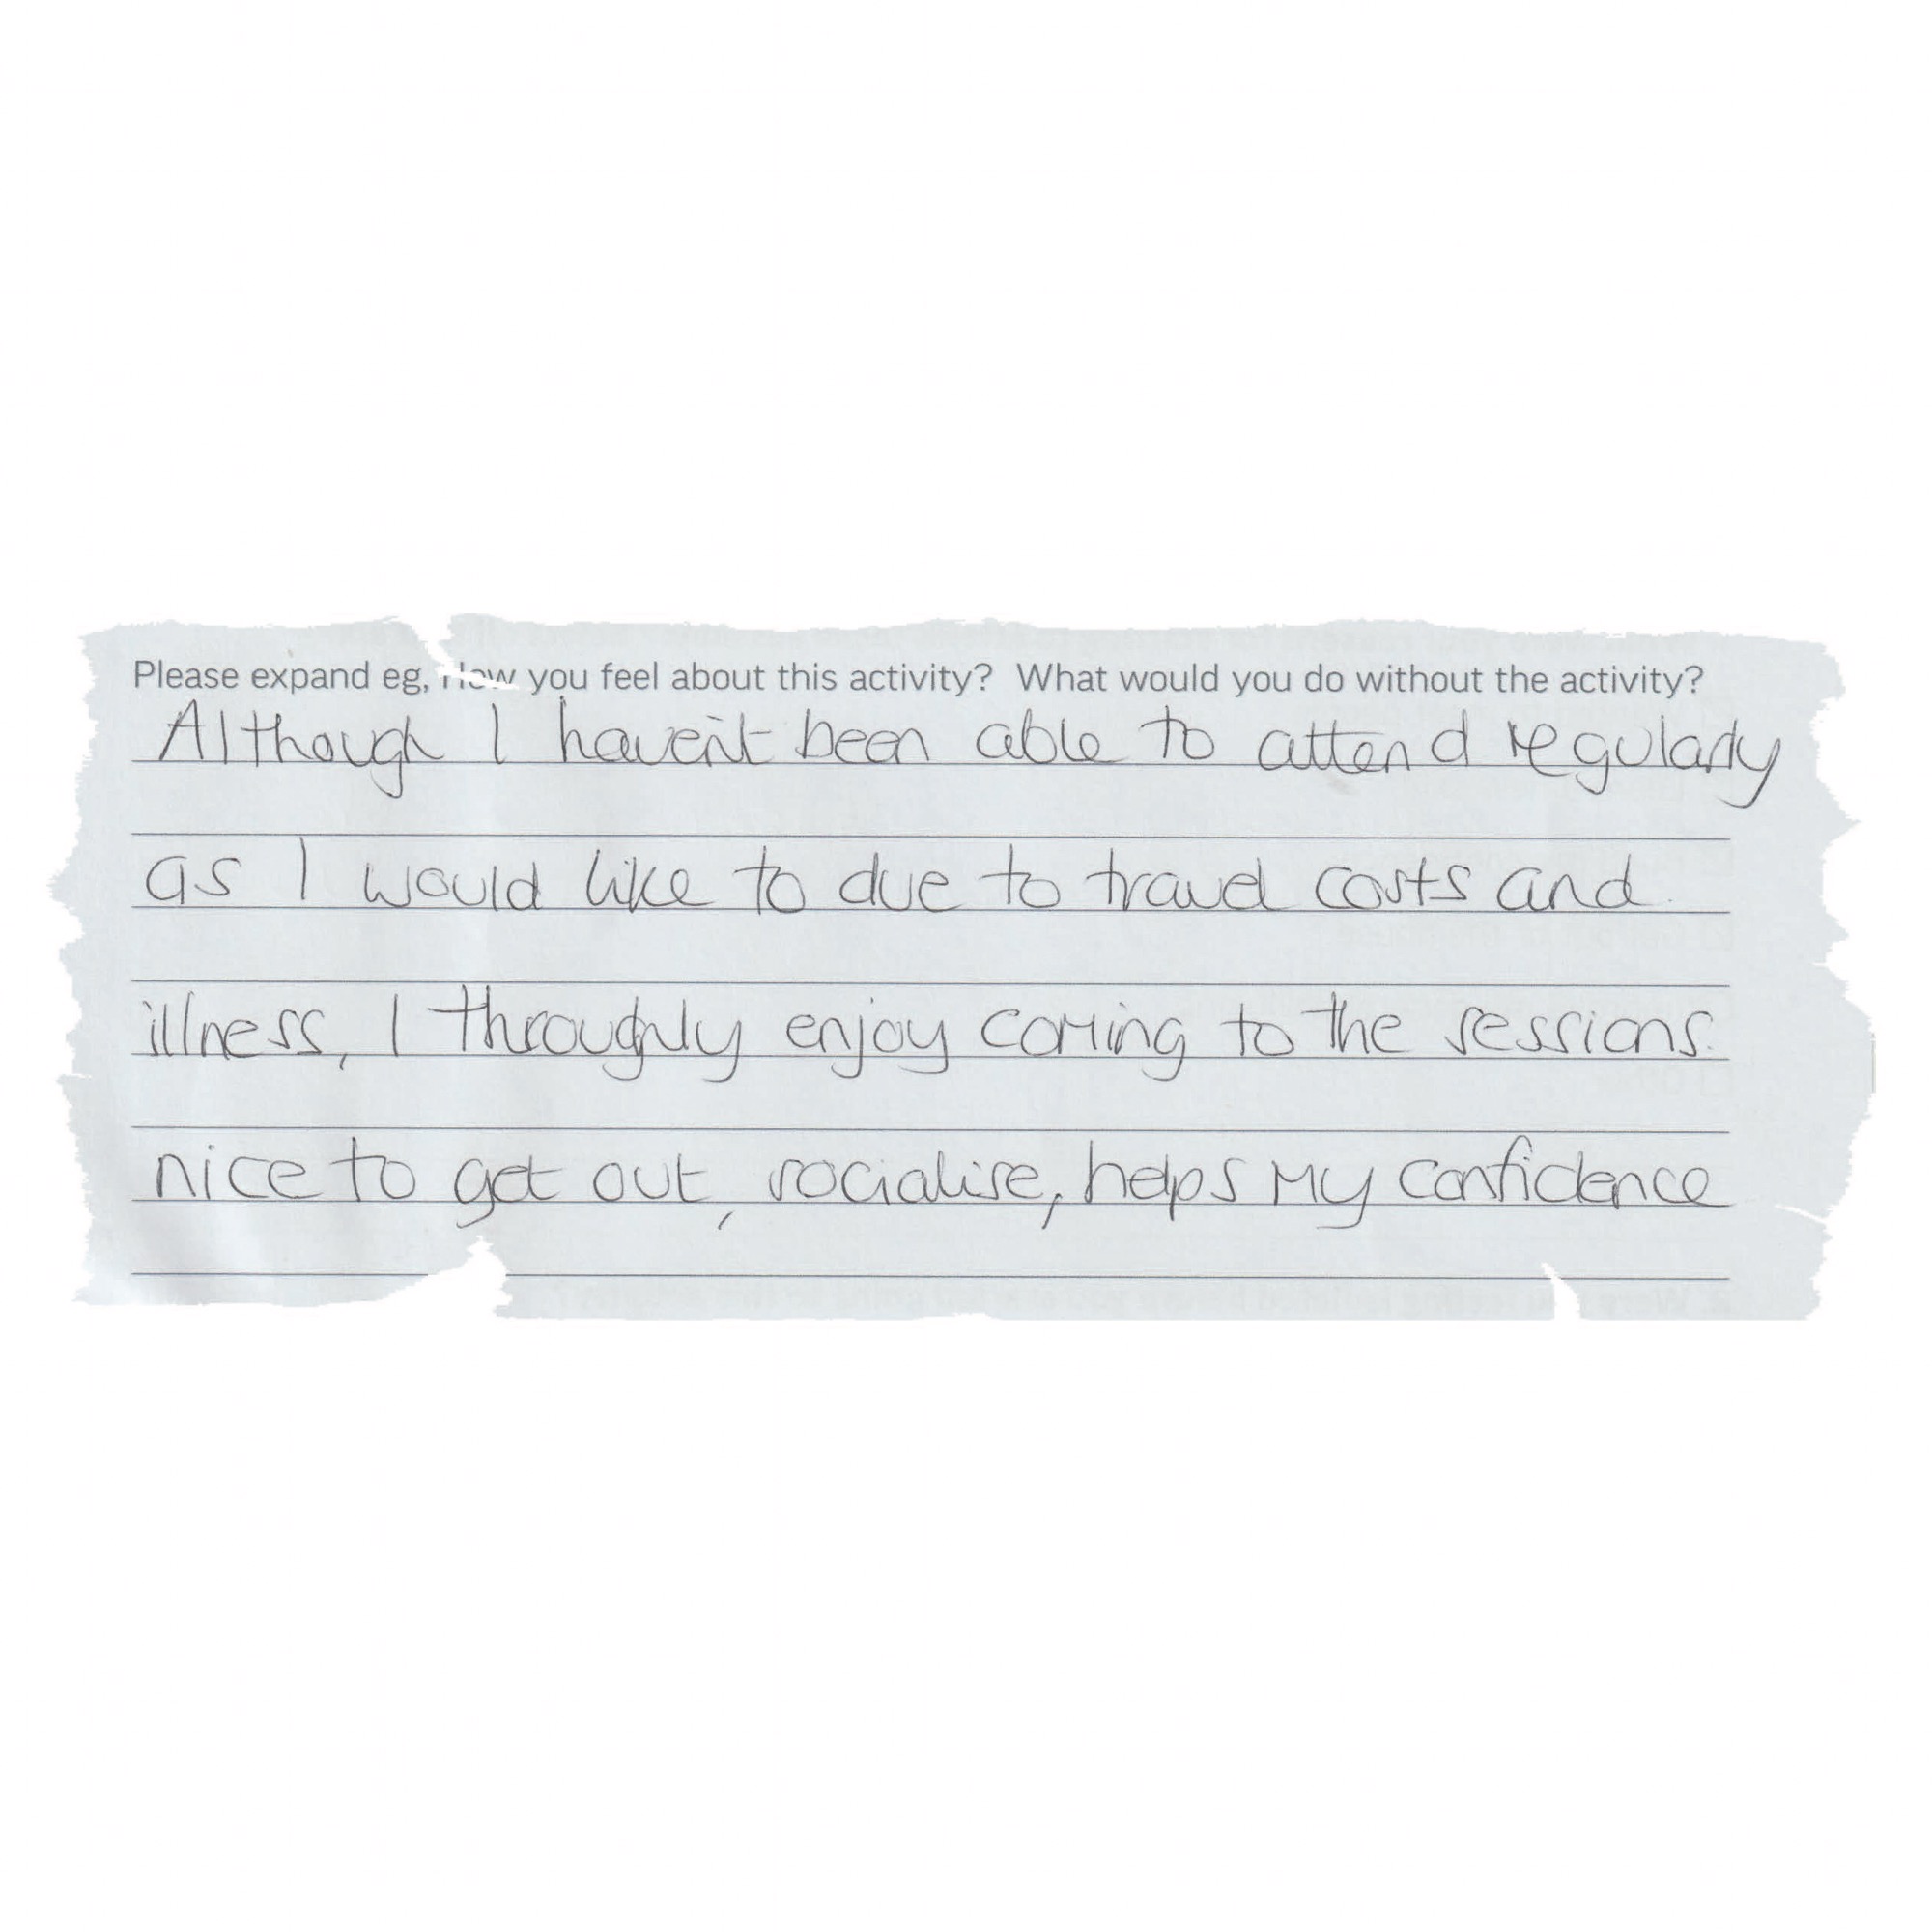 Please expand eg, How you feel about this activity? What would you do without the activity?
Although I haven't been able to attend regularly
as I would like to due to travel costs and
illness, I throughly enjoy coming to the sessions.
nice to get out, socialise, helps my confidence